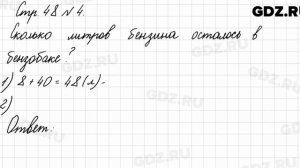 GDZ.RU
Стр. 48 № 4.
Сколько литров бензина осталось в
бензобаке?
1) 8 + 40 = 48 (л) -
2)
Ответ:
GDZ.RU